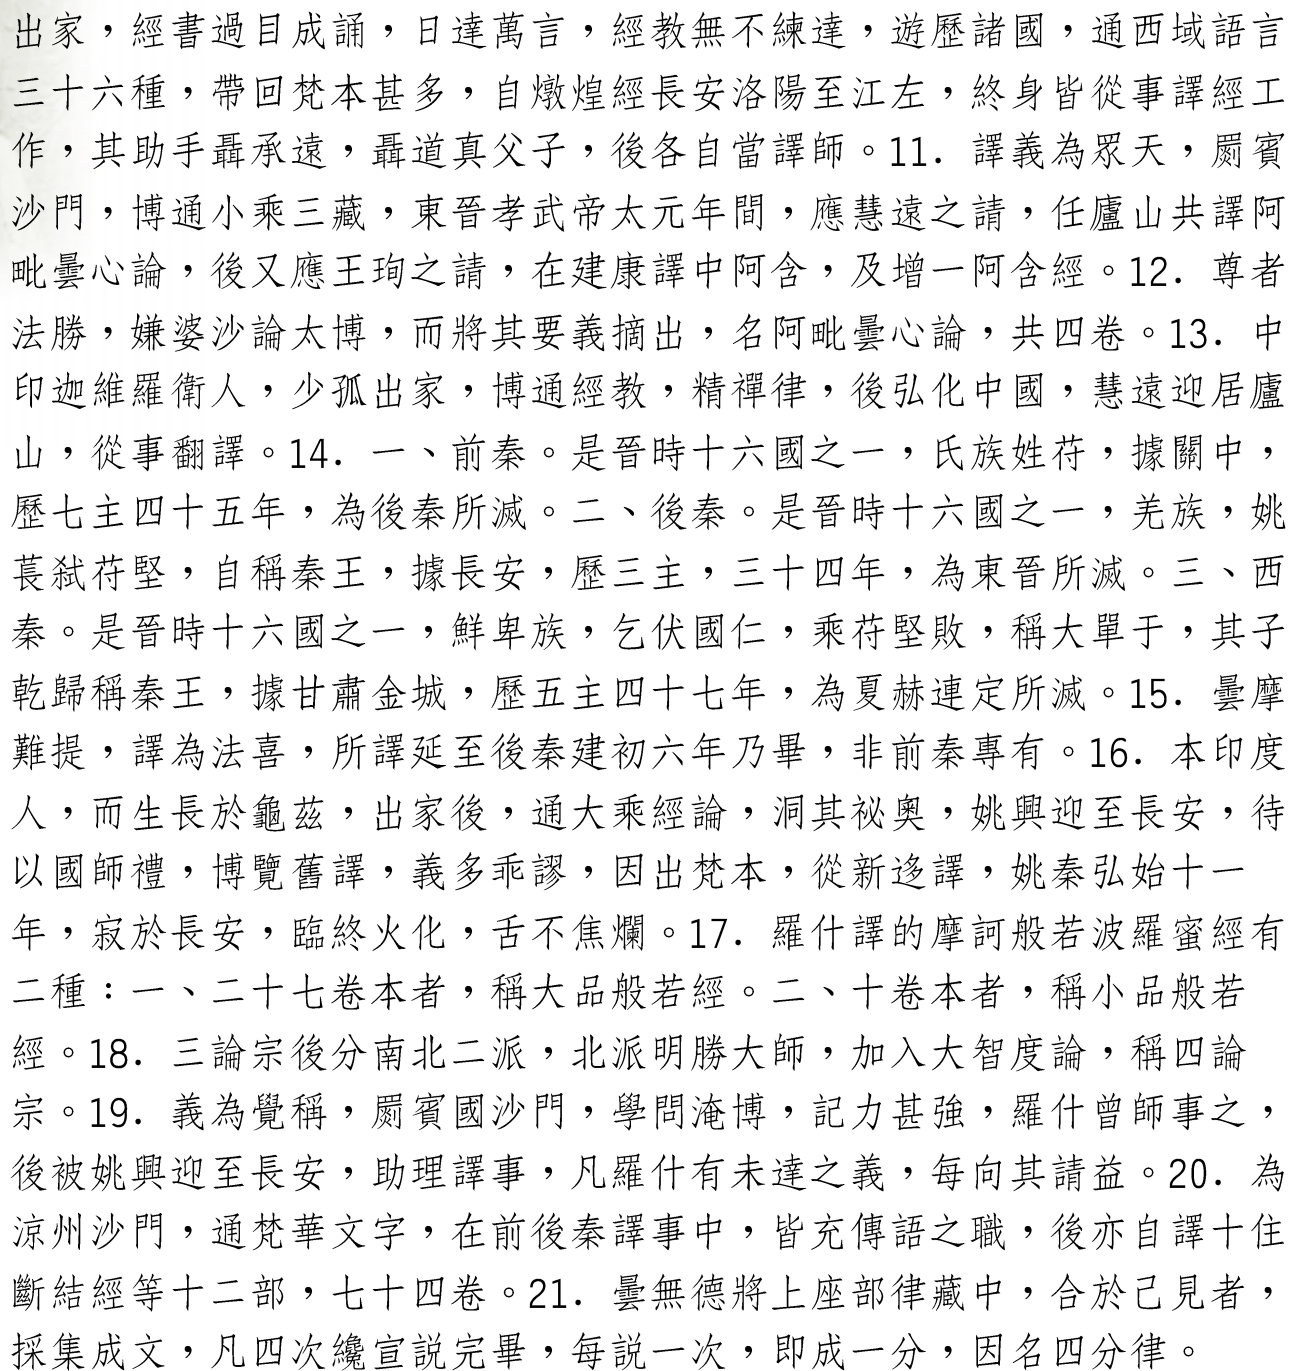 出家，經書過目成誦，日達萬言，經教無不練達，遊歷諸國，通西域語言
三十六種，帶回梵本甚多，自燉煌經長安洛陽至江左，終身皆從事譯經工
作，其助手聶承遠，聶道真父子，後各自當譯師。11. 譯義為眾天，罽賓
沙門，博通小乘三藏，東晉孝武帝太元年間，應慧遠之請，任廬山共譯阿
毗曇心論，後又應王珣之請，在建康譯中阿含，及增一阿含經。12. 尊者
法勝，嫌婆沙論太博，而將其要義摘出，名阿毗曇心論，共四卷。13. 中
印迦維羅衛人，少孤出家，博通經教，精禪律，後弘化中國，慧遠迎居廬
山，從事翻譯。14. 一、前秦。是晉時十六國之一，氏族姓苻，據關中，
歷七主四十五年，為後秦所滅。二、後秦。是晉時十六國之一，羌族，姚
萇弒苻堅，自稱秦王，據長安，歷三主，三十四年，為東晉所滅。三、西
秦。是晉時十六國之一，鮮卑族，乞伏國仁，乘苻堅敗，稱大單于，其子
乾歸稱秦王，據甘肅金城，歷五主四十七年，為夏赫連定所滅。15. 曇摩
難提，譯為法喜，所譯延至後秦建初六年乃畢，非前秦專有。16. 本印度
人，而生長於龜茲，出家後，通大乘經論，洞其祕奧，姚興迎至長安，待
以國師禮，博覽舊譯，義多乖謬，因出梵本，從新迻譯，姚秦弘始十一
年，寂於長安，臨終火化，舌不焦爛。17. 羅什譯的摩訶般若波羅蜜經有
二種：一、二十七卷本者，稱大品般若經。二、十卷本者，稱小品般若
經。18. 三論宗後分南北二派，北派明勝大師，加入大智度論，稱四論
宗。19. 義為覺稱，罽賓國沙門，學問淹博，記力甚強，羅什曾師事之，
後被姚興迎至長安，助理譯事，凡羅什有未達之義，每向其請益。20. 為
涼州沙門，通梵華文字，在前後秦譯事中，皆充傳語之職，後亦自譯十住
斷結經等十二部，七十四卷。21. 曇無德將上座部律藏中，合於己見者，
採集成文，凡四次纔宣說完畢，每說一次，即成一分，因名四分律。